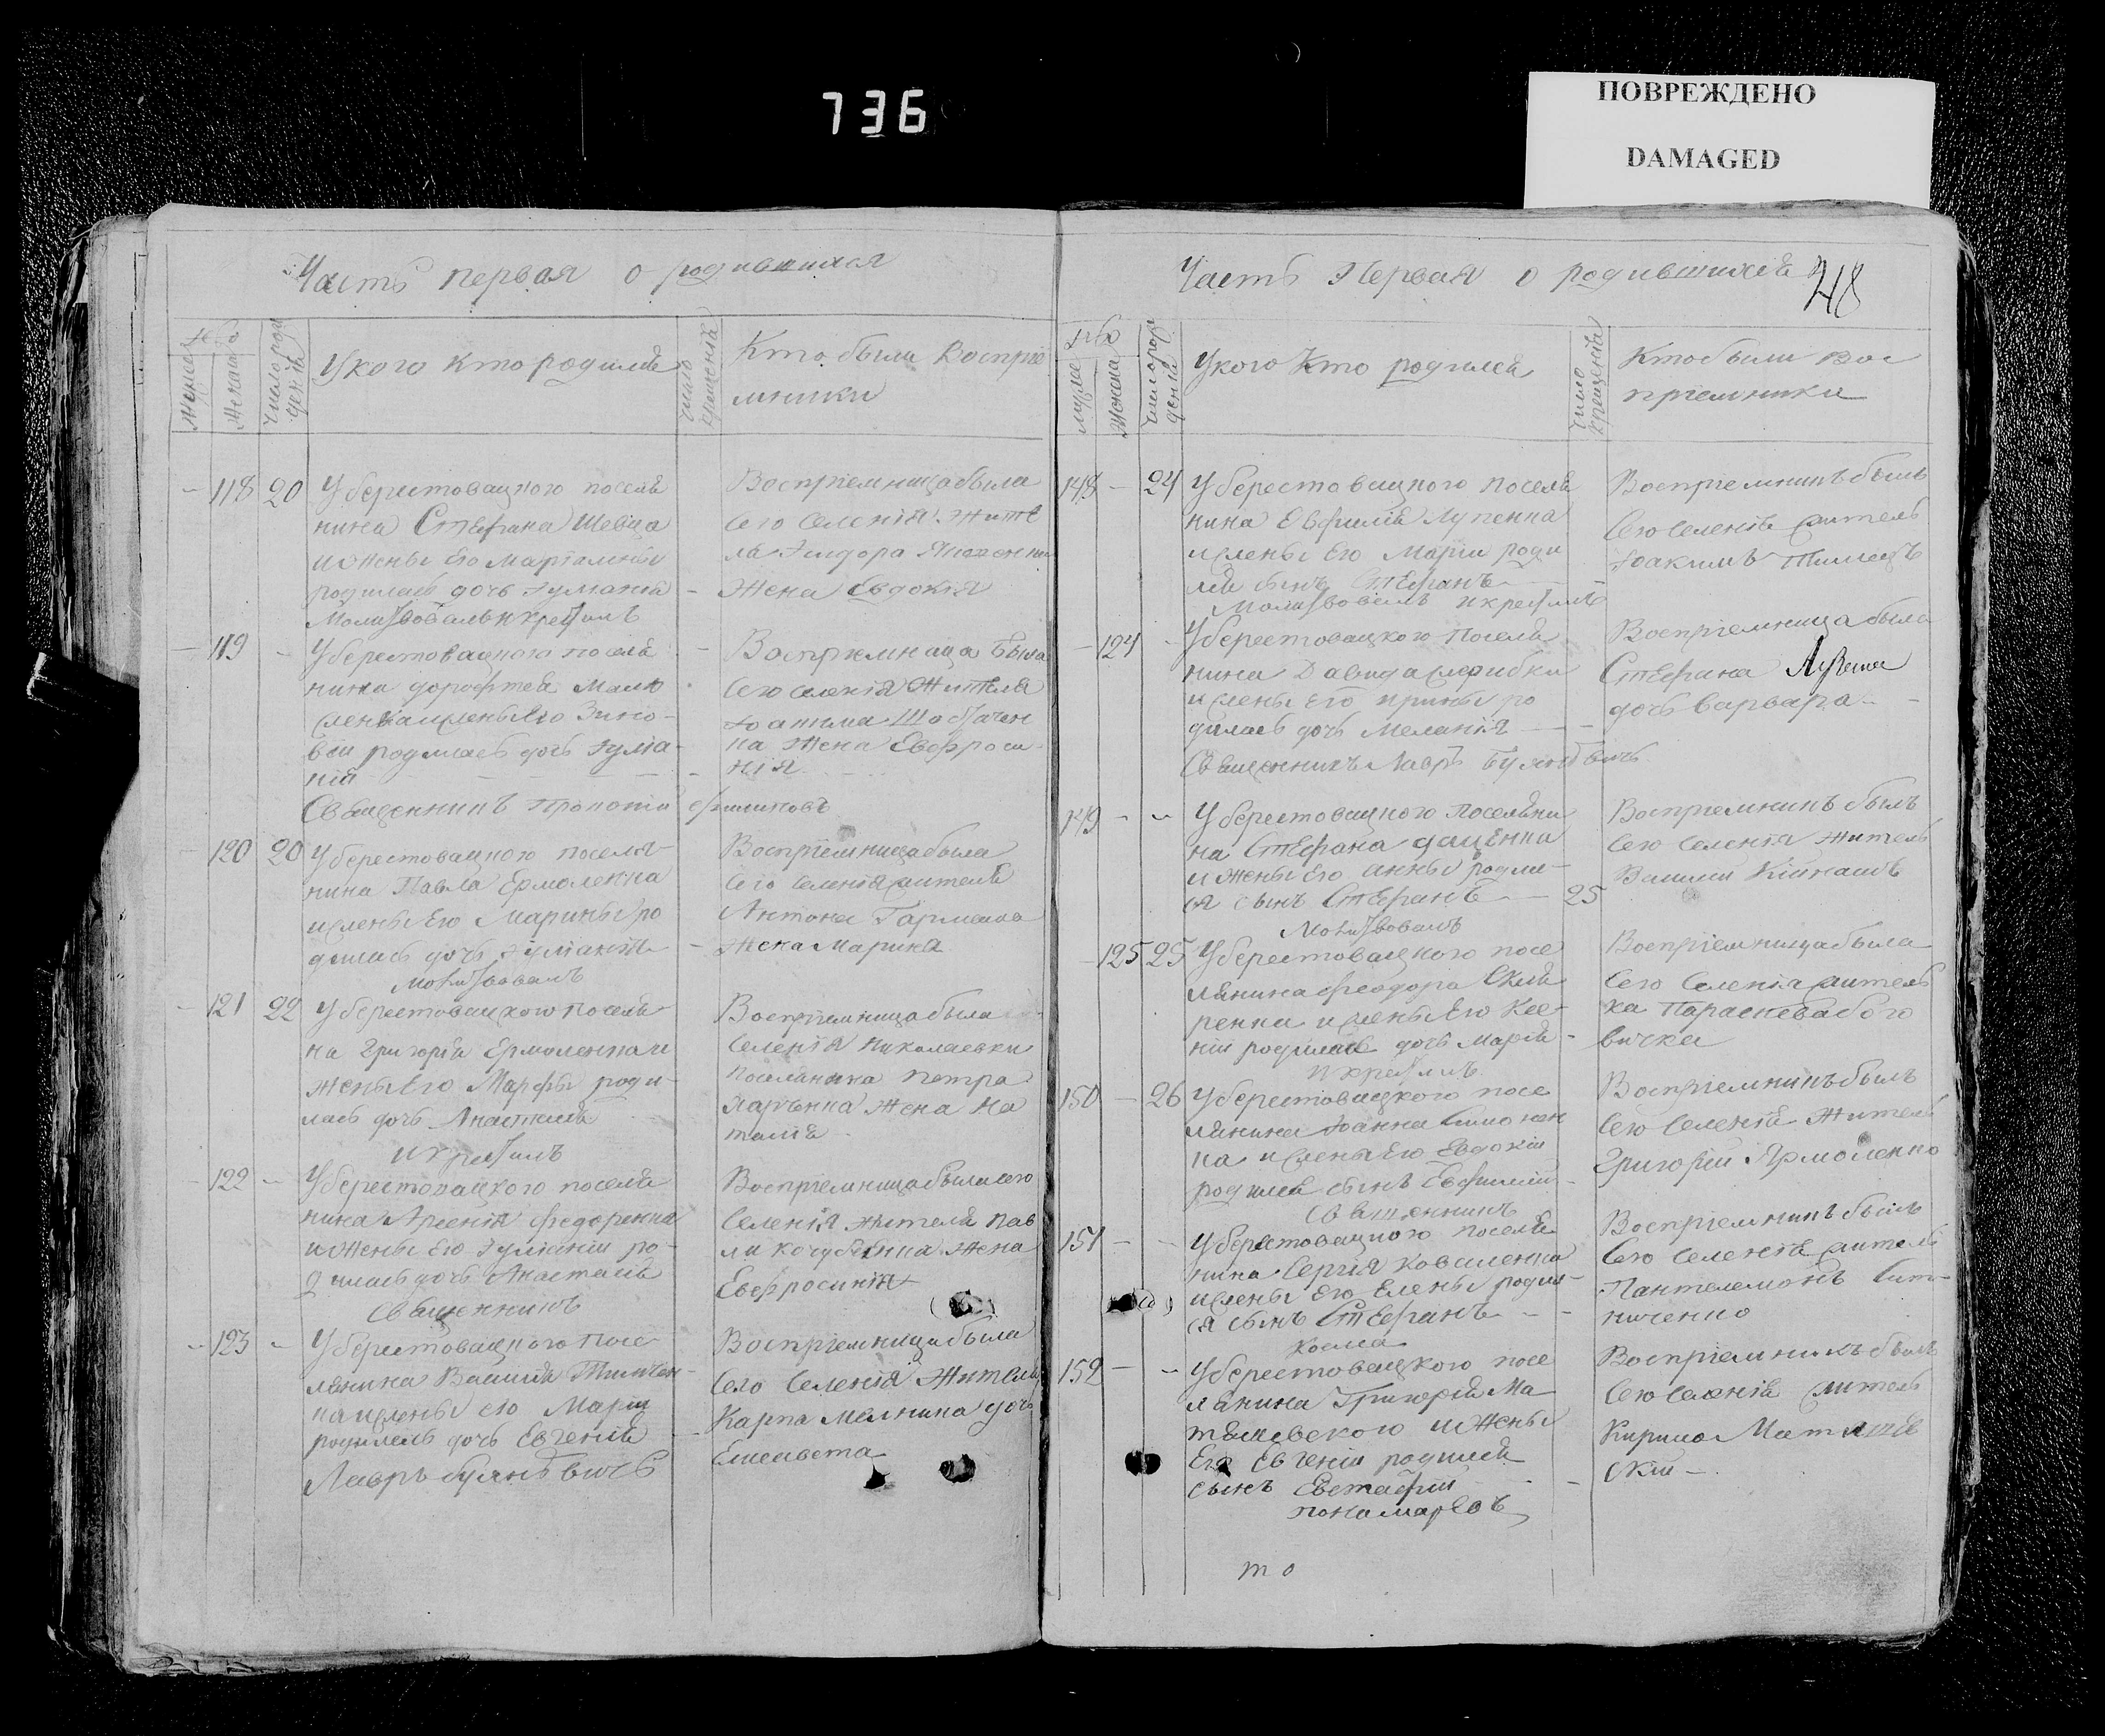 736
ПОВРЕЖДЕНО
DAMAGED
Часть первая о родившихся
мужеска
женска
число рождения
У кого кто родился
число крещения
Кто были восприе
мники
118 20 У берестовацкого поселя
нина Стефана Шевца
и жены его
родилась дочь Иулианiя
Молитвовалъ и крестилъ
Воспрiемница была
сего селенiя жите
ля
жена Евдокiя
119 У берестовацкого поселя
нина Дорофтея
и жены его Зино-
вiи родилась дочь Иулiа-
нiя
Священникъ
Воспрiемница была
сего селенiя жителя
Иоакима
на жена Евфроси-
нiя
120 20 У берестовацкого поселя-
нина Павла Ермоленка
и жены его Марины ро
дилась дочь Иулианiя
молитвовалъ
Воспрiемница была
сего селенiя жителя
Антона Гармаша
жена Марина
121 22 У берестовацкого поселя
на Григорiя Ермоленка и
жены его Марфы роди-
лась дочь Анастасiя
и крестилъ
Воспрiемница была
селенiя Николаевки
поселянина Петра
жена На
талiя
122 У берестовацкого поселя
нина Арсенiя Федоренка
и жены его Иулианiи ро-
дилась дочь Анастасiя
Священникъ
Воспрiемница была сего
селенiя жителя Пав
ла Кочубенка жена
Евфросинiя
123 У берестовацкого посе-
лянина Василiя Тимчен-
ка и жены его Марiи
родилась дочь Евгенiя
Лавръ
Воспрiемница была
сего селенiя жителя
Карпа Мелника дочь
Елисавета
Часть Первая о родившихся
48
мужеска
женска
число рождения
У кого Кто родился
число крещенiя
Кто были вос
прiемники
148 24 У берестовацкого поселя
нина Евфимiя Лупенка
и жены его Марiи роди
лся сынъ Стефанъ
Молитвовалъ и крестилъ
Воспрiемникъ былъ
сего селенiя житель
Иоакимъ
124 У берестовацкого поселя
нина Давида
и жены его Ирины ро
дилась дочь Меланiя
Священникъ Лавръ
Воспрiемница была
Стефана
дочь Варвара
149 У берестовацкого поселяни
на Стефана Даценка
и жены его Анны родил-
ся сынъ Стефанъ 25
Молитвовалъ
Воспрiемникъ былъ
сего селенiя житель
125 25 У берестовацкого посе
лянина Феодора Скля
ренка и жены его Ксе-
нiи родилась дочь Марiя
и крестилъ
Воспрiемница была
сего селенiя житель
ка Параскева Бого
вичка
150 26 У берестовацкого посе
лянина Iоанна Симонен
ка и жены его Евдокiи
родился сынъ Евфимiй
Священникъ
Воспрiемникъ былъ
сего селенiя житель
Григорiй Ярмоленко
151 У берестовацкого поселя
нина Сергiя Коваленка
и жены его Елены родил-
ся сынъ Стефанъ
Косма
Воспрiемникъ былъ
сего селенiя житель
Пантелемонъ Сит-
ниченко
152 У берестовацкого посе
лянина Григорiя Ма
тяшевского и жены
его Евгенiи родился
сынъ Евстафiй
пономаревъ
Воспрiемникъ былъ
сего селенiя житель
Кирило Матяшев
скiй
то